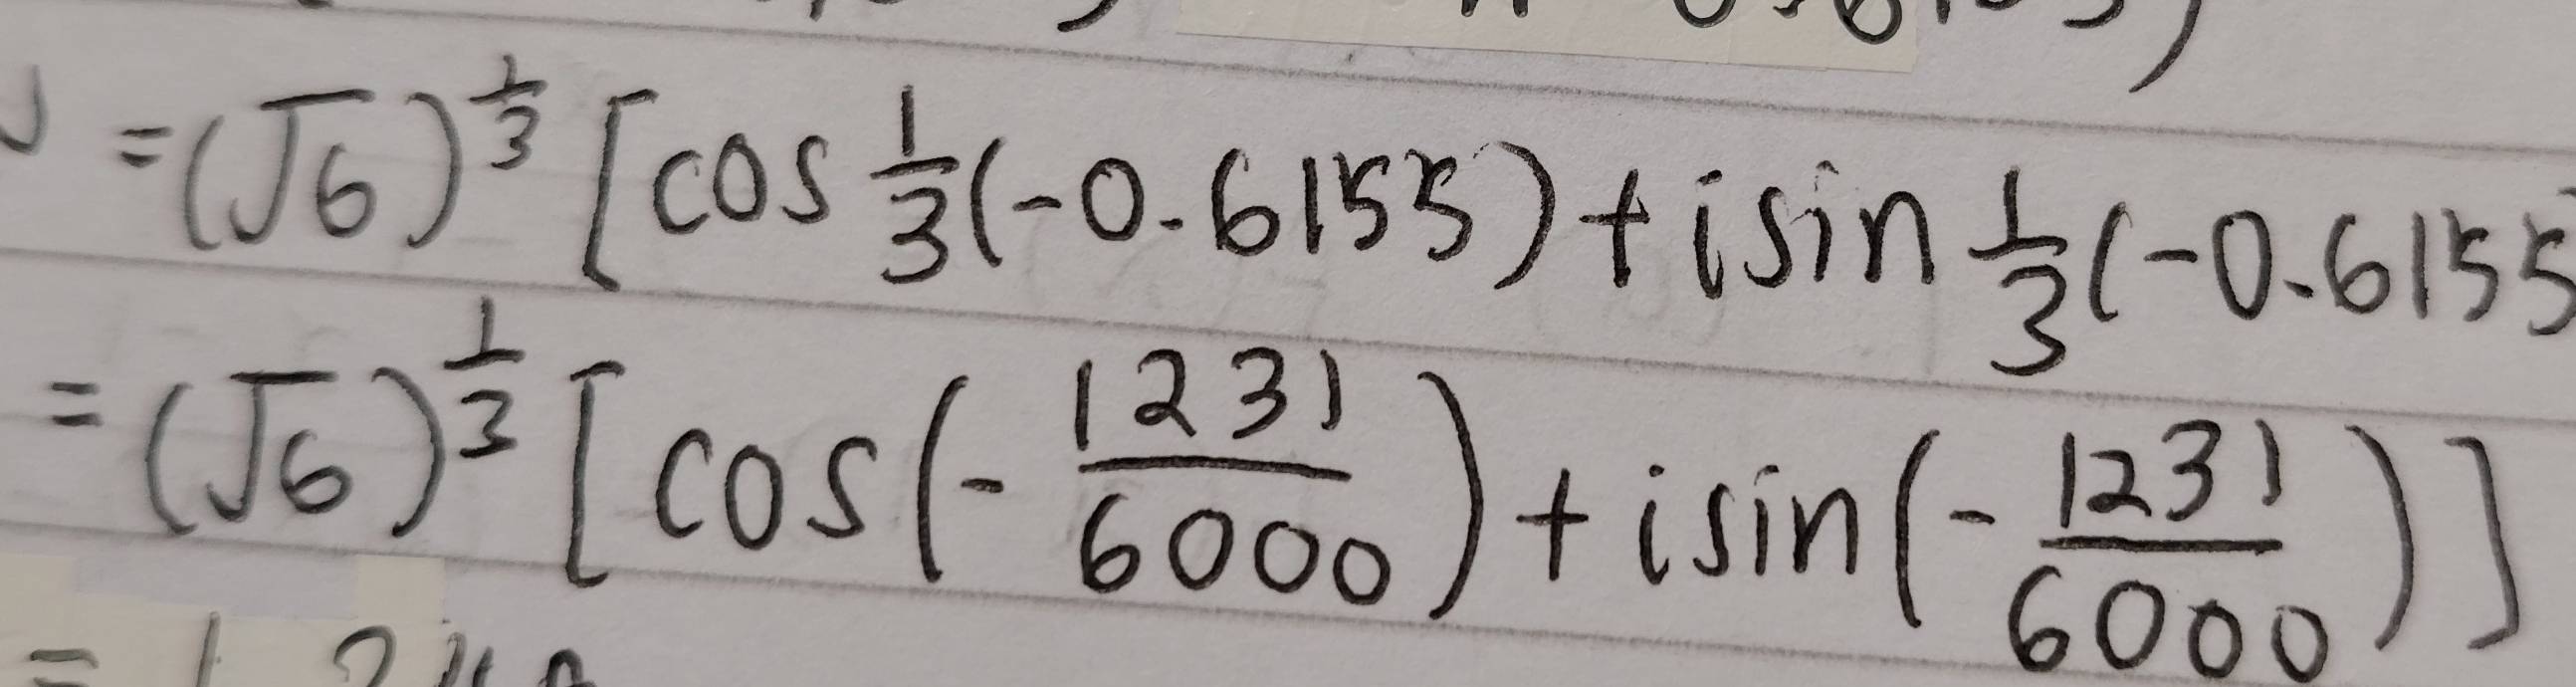 = (√6)^{1/3} [cos 1/3 (-0.6155) + i sin 1/3 (-0.6155
= (√6)^{1/3} [cos (- 1231/6000) + i sin (- 1231/6000)]